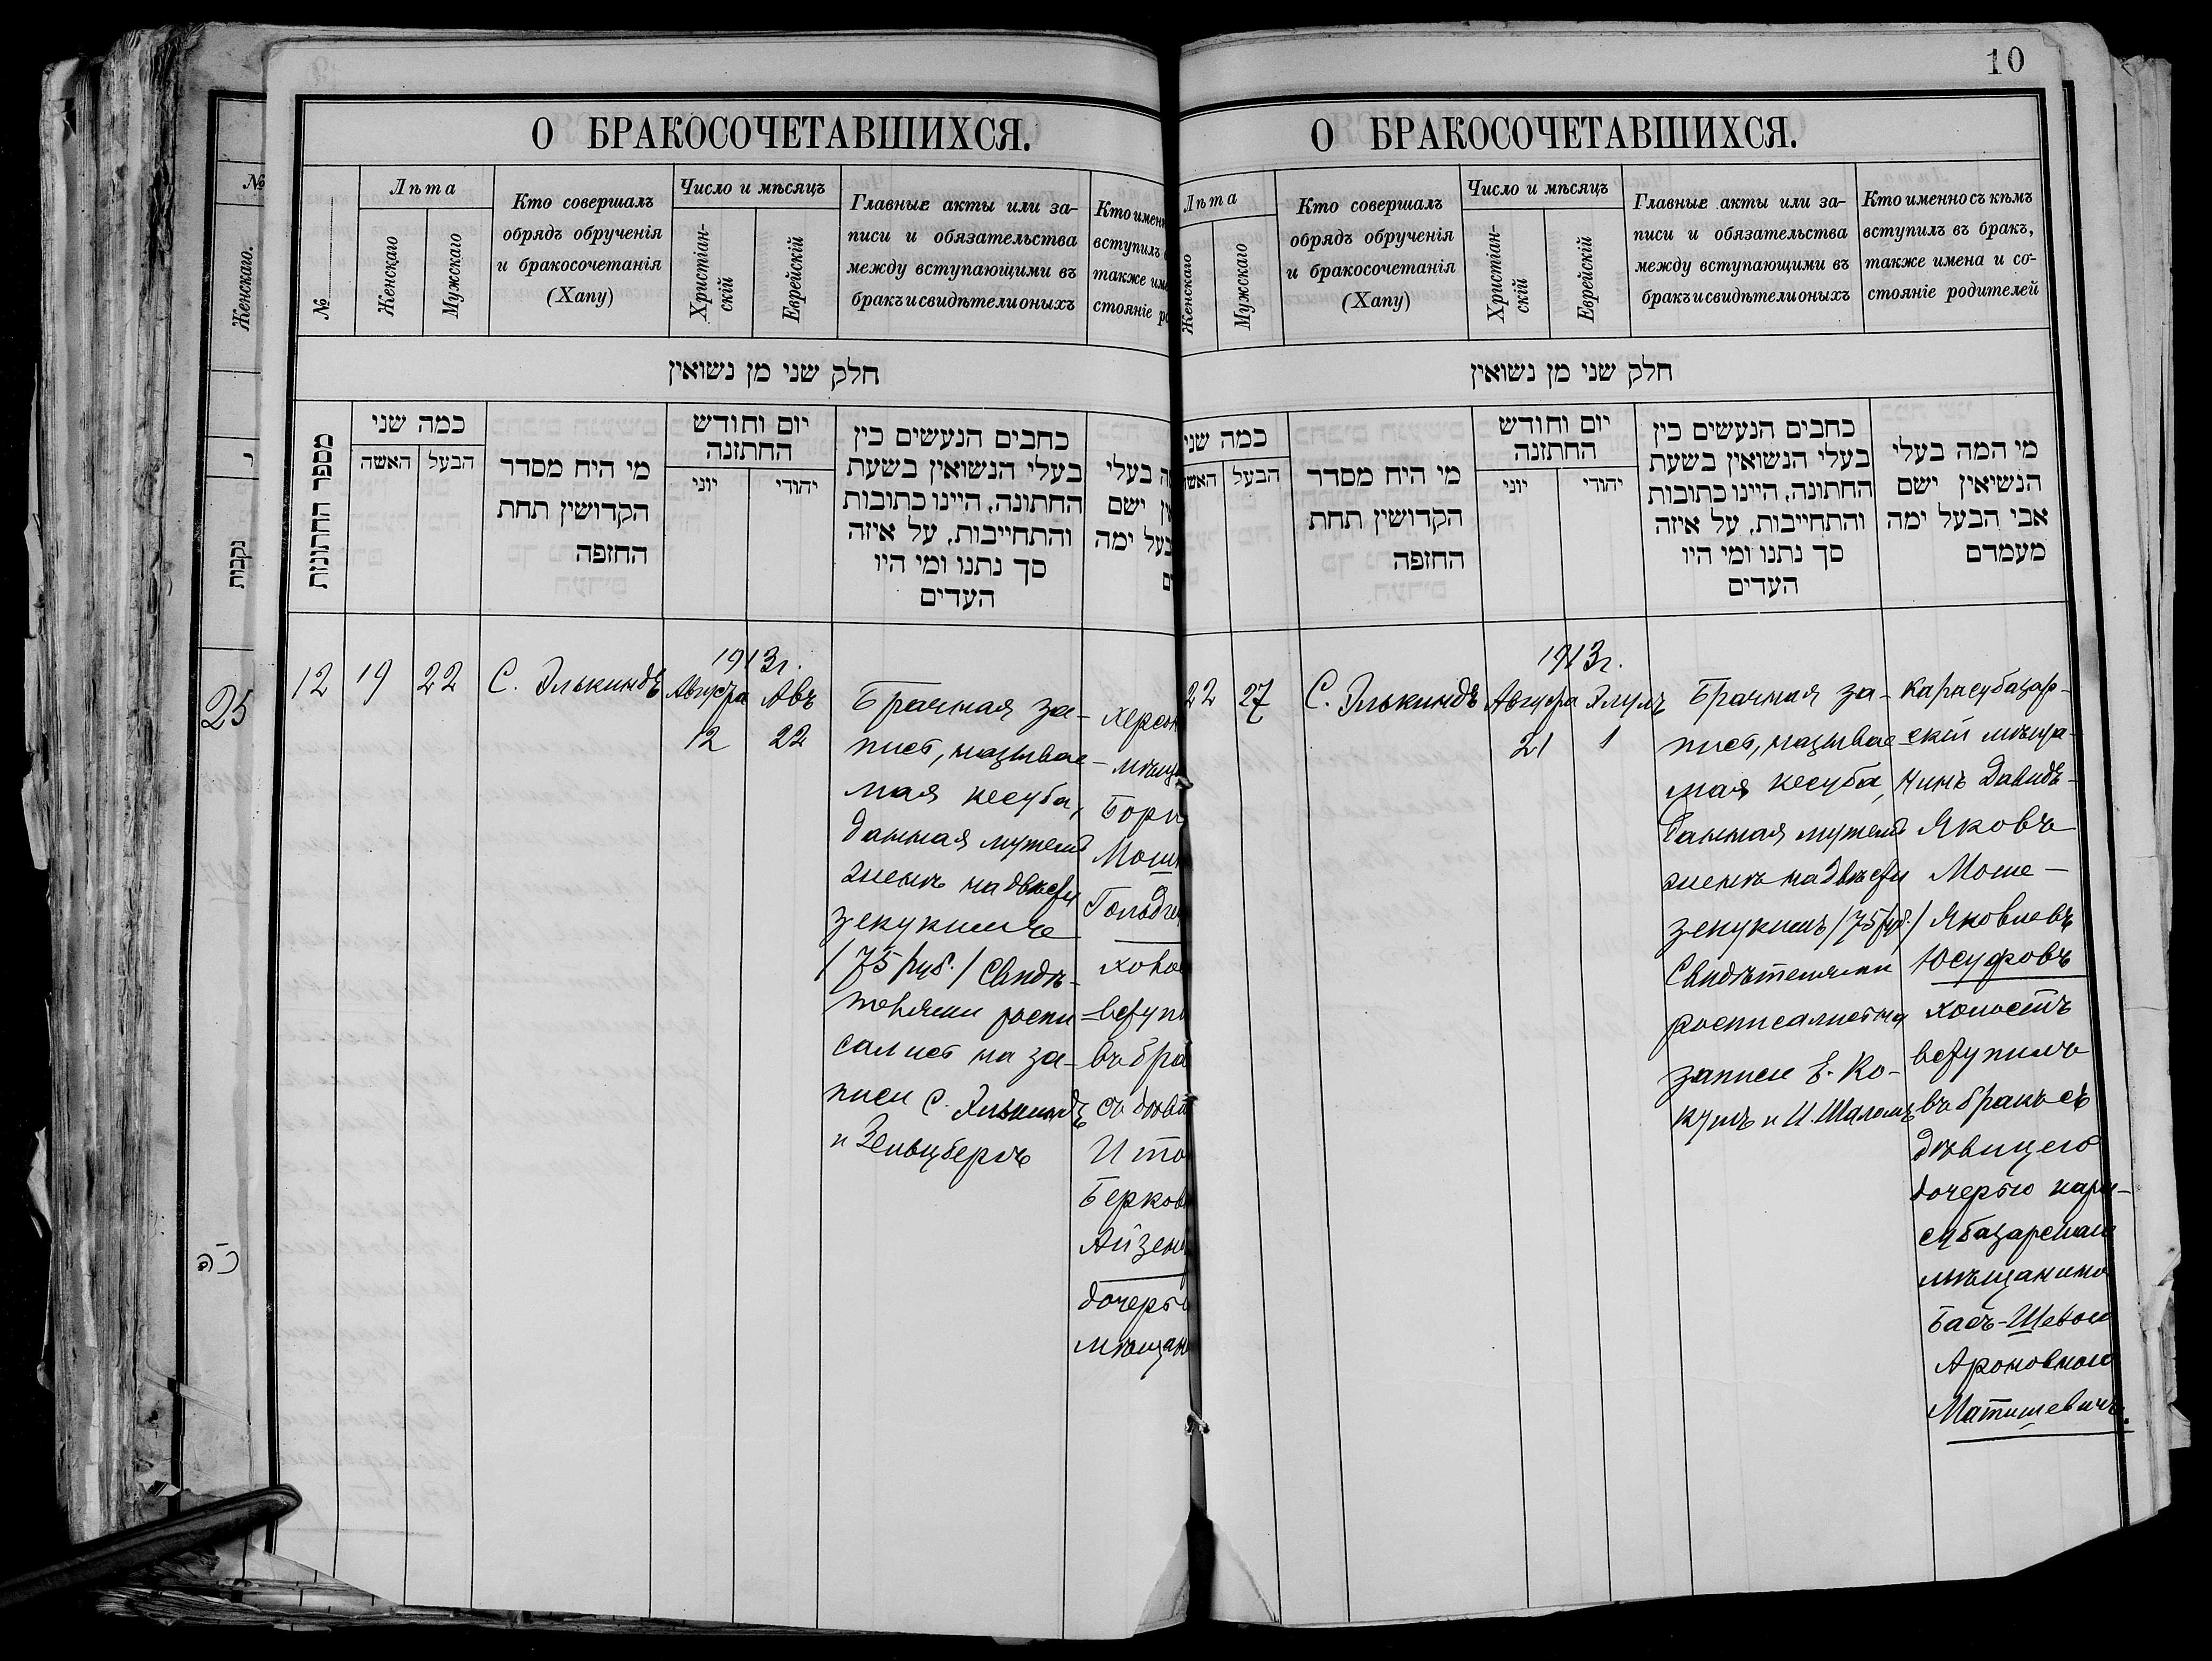 10
О БРАКОСОЧЕТАВШИХСЯ.
№
Лѣта
Женскаго
Мужскаго
Кто совершалъ
обрядъ обрученія
и бракосочетанія
(Хапу)
Число и мѣсяцъ
Христіан-
скій
Еврейскій
Главные акты или за-
писи и обязательства
между вступающими въ
бракъ и свидѣтели оныхъ
Кто имен
вступилъ
также им
стояніе р
חלק שני מן נשואין
מספר החתונות
כמה שני
האשה
הבעל
מי היח מסדר
הקדושין תחת
החזפה
יום וחודש
החתזנה
יוני
יהודי
כחבים הנעשים כין
בעלי הנשואין בשעת
החתונה, היינו כתובות
והתחייבות, על איזה
סך נתנו ומי היו
העדים
בעלי
ישם
בעל ימה
12
19
22
С. Элькиндъ
1913г.
Августа
12
Авъ
22
Брачная за-
пись, называе-
мая кесуба,
данная мужемъ
женѣ на двѣсти
зекукимъ
/75 руб./ Свидѣ-
телями роспи-
сались на за-
писи С. Элькиндъ
и Зельцберъ
херсон
мѣща
Бори
Мош
Гольд
холо
вступи
въ бра
съ дѣви
Ито
Берков
Айзен
дочерь
мѣщан
Женскаго.
№
נקבות
25
О БРАКОСОЧЕТАВШИХСЯ.
Лѣта
Женскаго
Мужскаго
Кто совершалъ
обрядъ обрученія
и бракосочетанія
(Хапу)
Число и мѣсяцъ
Христіан-
скій
Еврейскій
Главные акты или за-
писи и обязательства
между вступающими въ
бракъ и свидѣтели оныхъ
Кто именно съ кѣмъ
вступилъ въ бракъ,
также имена и со-
стояніе родителей
חלק שני מן נשואין
כמה שני
האשה
הבעל
מי היח מסדר
הקדושין תחת
החזפה
יום וחודש
החתזנה
יוני
יהודי
כחבים הנעשים כין
בעלי הנשואין בשעת
החתונה, היינו כתובות
והתחייבות, על איזה
סך נתנו ומי היו
העדים
מי המה בעלי
הנשיאין ישם
אבי הבעל ימה
מעמדם
22
27
С. Элькиндъ
1913г.
Августа
21
Элулъ
1
Брачная за-
пись, называе-
мая кесуба,
данная мужемъ
женѣ на двѣсти
зекукимъ /75 руб./
Свидѣтелями
росписались на
записи Е. Ко-
кушъ и И. Шаломъ
карасубазар-
скій мѣща-
нинъ Давидъ-
Яковъ
Моше-
Яковлевъ
Юсуфовъ
холостъ
вступилъ
въ бракъ съ
дѣвицею
дочерью кара-
субазарскаго
мѣщанина
Басъ-Шевою
Ароновною
Матишевичъ.